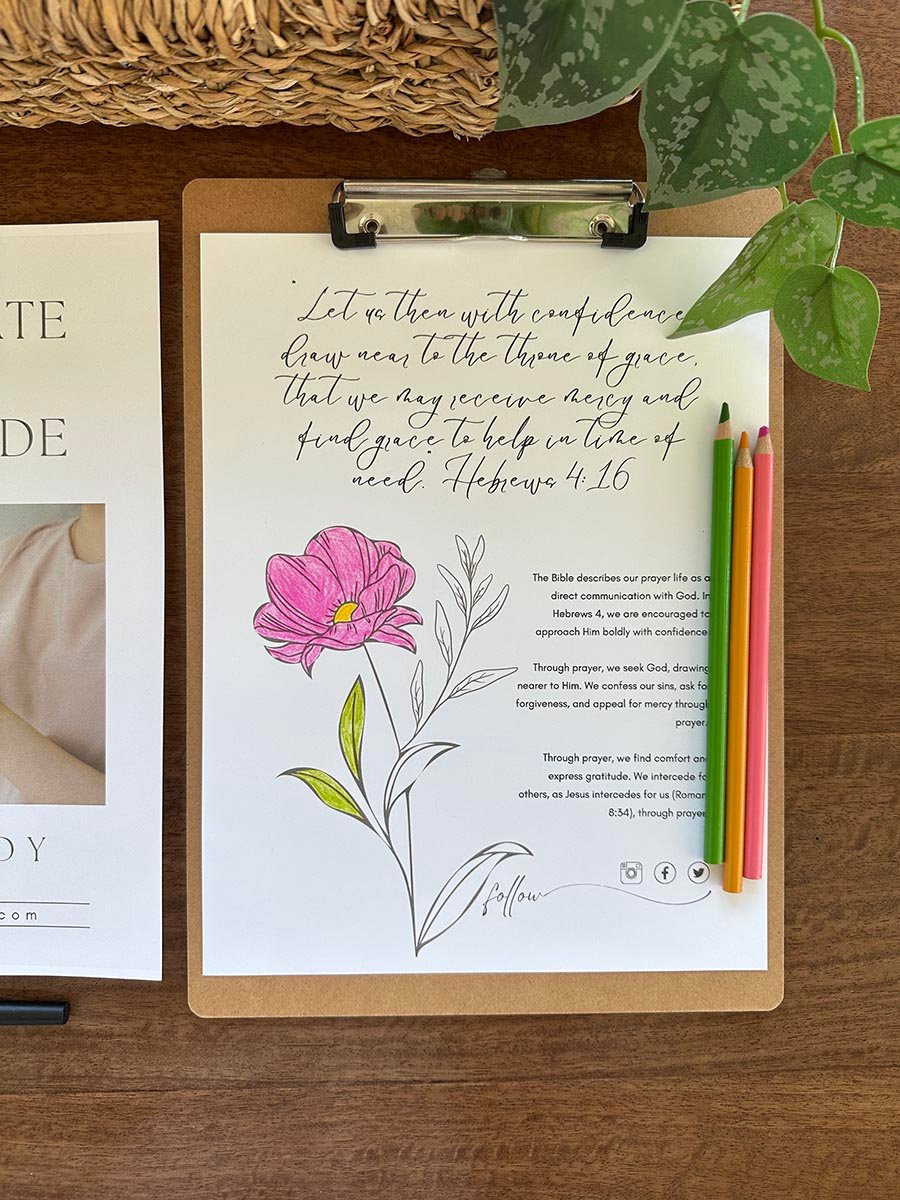 ATE
DE
DY
com
Let us then with confidence
draw near to the throne of grace,
that we may receive mercy and
find grace to help in time of
need. Hebrews 4:16
The Bible describes our prayer life as a
direct communication with God. In
Hebrews 4, we are encouraged to
approach Him boldly with confidence.
Through prayer, we seek God, drawing
nearer to Him. We confess our sins, ask for
forgiveness, and appeal for mercy through
prayer.
Through prayer, we find comfort and
express gratitude. We intercede for
others, as Jesus intercedes for us (Roman
8:34), through prayer
follow